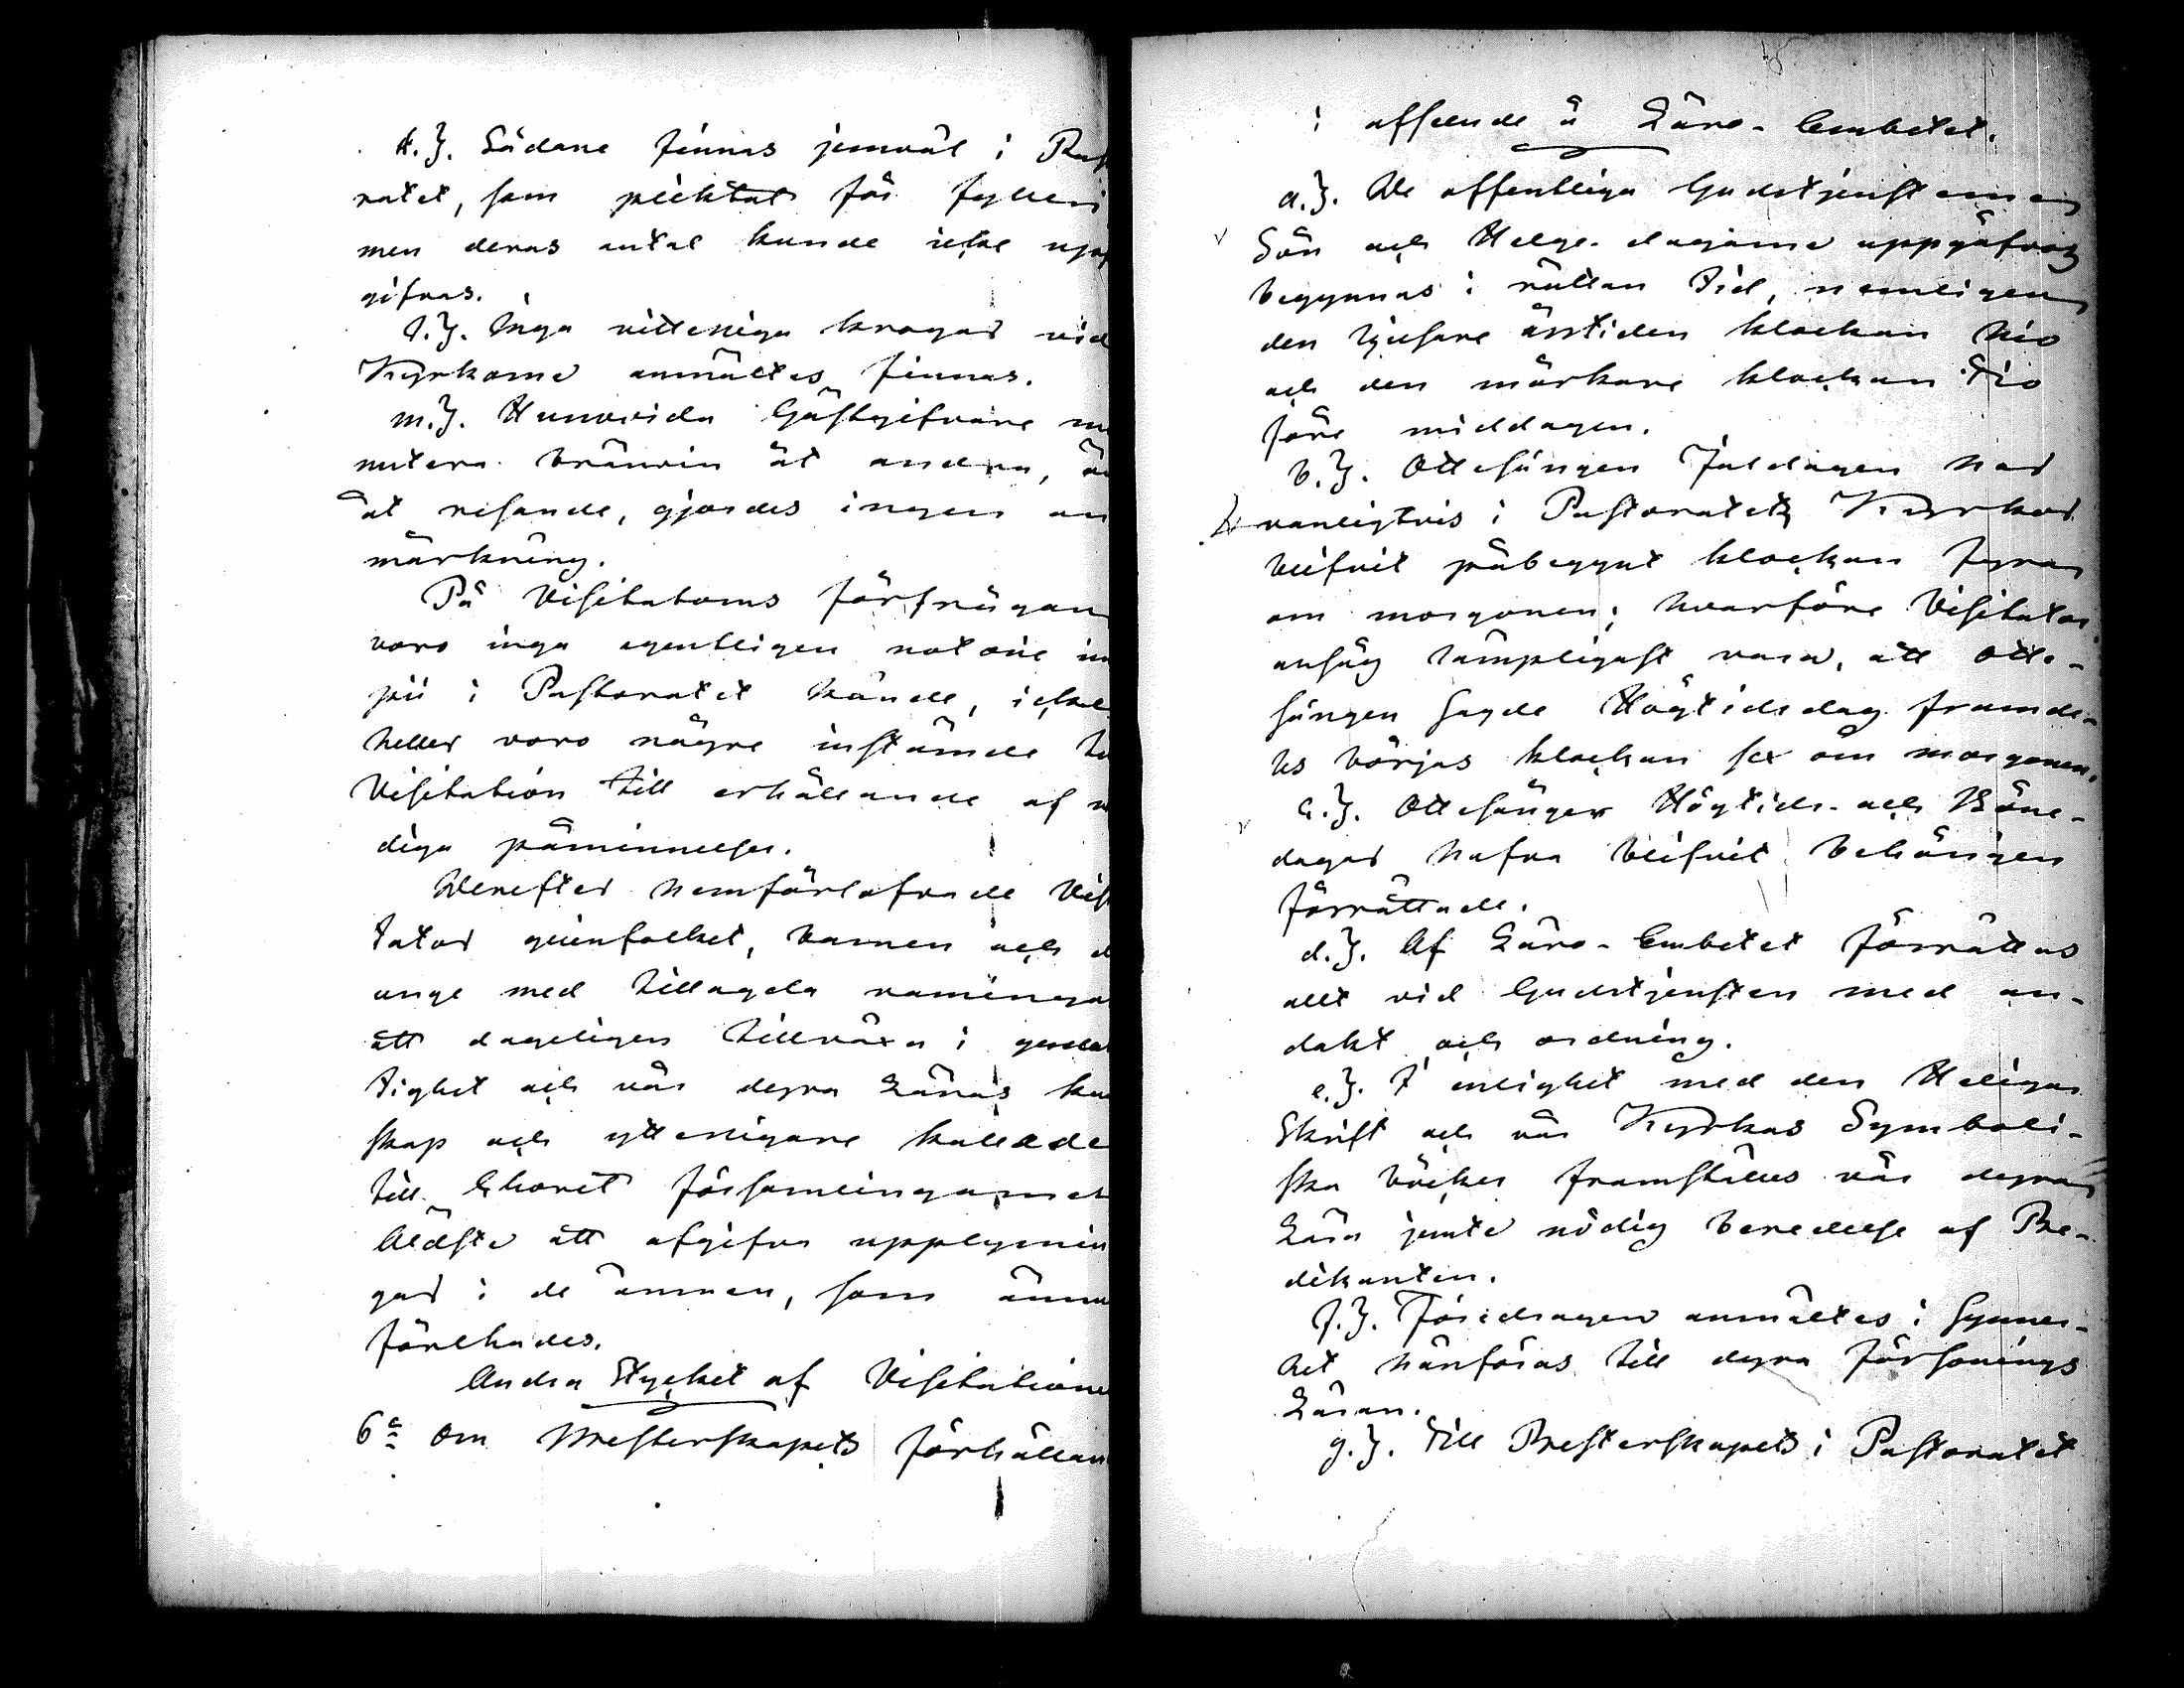 k.). Sådane finnas jemväl i Past
ratet, som pliktat för fylleri
men deras antal kunde icke upp
gifvas.
l.). Inga vitterliga krogar vid
Kyrkorne anmältes finnas.
m.). Huruvida Gästgifvare
mutera bränvin åt andra, än
åt resande, gjordes ingen an
märkning.
På Visitators förfrågan
voro inga egentligen notorie im
pii i Pastoratet kände, icke
heller voro någre instämde
Visitation till erhållande af
diga påminnelser.
Derefter hemförlofvade Visi
tator qvinfolket, barnen och d
unge med tillagda varninga
att dageligen tillväxa i gudak
tighet och vår dyra Läras kun
skap och ytterligare kallade
till Choret församlingarnes
Äldste att afgifva upplysnin
gar i de ämnen, som ännu
förehades.
Andra Stycket af Visitatione
6o Om Presterskapets förhållan
i afseende å Läro-Embetet.
a.). De offentliga Gudstjensterne
Sön och Helge-dagarne uppgåfvos
begynnas i rättan tid, nemligen
den ljusare årstiden klockan nio
och den mörkare klockan tio
före middagen.
b.). Ottesången Juldagen har
vanligtvis i Pastoratets Kyrkor
blifvit påbegynt klockan fyra
om morgonen; hvarföre Visitator
ansåg lämpligast vara, att otte-
sången sagde Högtidsdag framde-
les börjas klockan sex om morgonen.
c.). Ottesånger Högtids- och Böne-
dagar hafva blifvit behörigen
förrättade.
d.). Af Läro-Embetet förrättas
allt vid Gudstjensten med an-
dakt och ordning.
e.). I enlighet med den Heliga
Skrift och vår Kyrkas Symboli-
ska böcker framställes vår dyra
Lära jemte nödig beredelse af Pre-
dikanten.
f.). Föredragen anmältes i synner-
het hänföras till dyra försonings
Läran.
g.). Till Presterskapets i Pastoratet